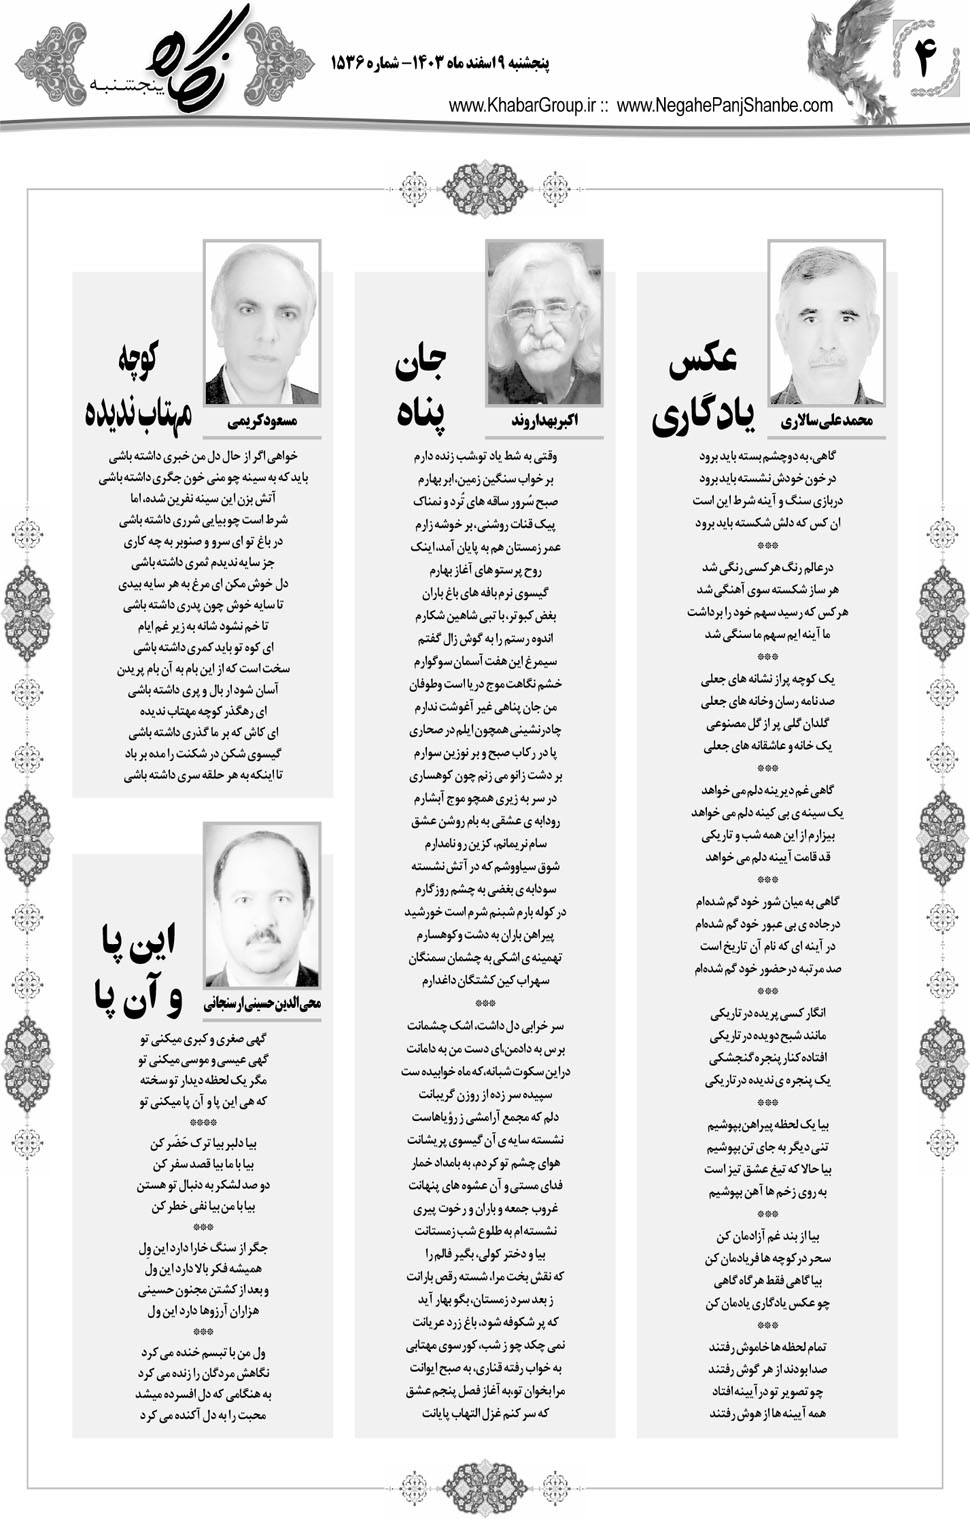 ۴
پنجشنبه ۹ اسفند ماه ۱۴۰۳- شماره ۱۵۳۶
www.KhabarGroup.ir :: www.NegahePanjShanbe.com
نگاه
پنجشنبه
عکس
یادگاری
محمدعلی سالاری
گاهی، به دوچشم بسته باید برود
درخون خودش نشسته باید برود
دربازی سنگ و آینه شرط این است
ان کس که دلش شکسته باید برود
***
درعالم رنگ هرکسی رنگی شد
هر ساز شکسته سوی آهنگی شد
هرکس که رسید سهم خود را برداشت
ما آینه ایم سهم ما سنگی شد
***
یک کوچه پراز نشانه های جعلی
صدنامه رسان وخانه های جعلی
گلدان گلی پر از گل مصنوعی
یک خانه و عاشقانه های جعلی
***
گاهی غم دیرینه دلم می خواهد
یک سینه ی بی کینه دلم می خواهد
بیزارم از این همه شب و تاریکی
قد قامت آیینه دلم می خواهد
***
گاهی به میان شور خود گم شده‌ام
درجاده ی بی عبور خود گم شده‌ام
در آینه ای که نام آن تاریخ است
صد مرتبه درحضور خود گم شده‌ام
***
انگار کسی پریده در تاریکی
مانند شبح دویده در تاریکی
افتاده کنار پنجره گنجشکی
یک پنجره ی ندیده در تاریکی
***
بیا یک لحظه پیراهن بپوشیم
تنی دیگر به جای تن بپوشیم
بیا حالا که تیغ عشق تیز است
به روی زخم ها آهن بپوشیم
***
بیا از بند غم آزادمان کن
سحر درکوچه ها فریادمان کن
بیا گاهی فقط هرگاه گاهی
چو عکس یادگاری یادمان کن
***
تمام لحظه ها خاموش رفتند
صدا بودند از هر گوش رفتند
چو تصویر تو در آیینه افتاد
همه آیینه ها از هوش رفتند
جان
پناه
اکبر بهداروند
وقتی به شط یاد تو،شب زنده دارم
بر خواب سنگین زمین، ابر بهارم
صبح سُرور ساقه های تُرد و نمناک
پیک قنات روشنی، بر خوشه زارم
عمر زمستان هم به پایان آمد، اینک
روح پرستو های آغاز بهارم
گیسوی نرم بافه های باغ باران
بغض کبوتر، با تبی شاهین شکارم
اندوه رستم را به گوش زال گفتم
سیمرغ این هفت آسمان سوگوارم
خشم نگاهت موج دریا است وطوفان
من جان پناهی غیر آغوشت ندارم
چادرنشینی همچون ایلم در صحاری
پا در رکاب صبح و بر نوزین سوارم
بر دشت زانو می زنم چون کوهساری
در سر به زیری همچو موج آبشارم
رودابه ی عشقی به بام روشن عشق
سام نریمانم، کزین رو نامدارم
شوق سیاووشم که در آتش نشسته
سودابه ی بغضی به چشم روزگارم
در کوله بارم شبنم شرم است خورشید
پیراهن باران به دشت وکوهسارم
تهمینه ی اشکی به چشمان سمنگان
سهراب کین کشتگان داغدارم
***
سر خرابی دل داشت، اشک چشمانت
برس به دادمن،ای دست من به دامانت
دراین سکوت شبانه، که ماه خوابیده ست
سپیده سر زده از روزن گریبانت
دلم که مجمع آرامشی ز رؤیاهاست
نشسته سایه ی آن گیسوی پریشانت
هوای چشم تو کردم، به بامداد خمار
فدای مستی و آن عشوه های پنهانت
غروب جمعه و باران و رخوت پیری
نشسته ام به طلوع شب زمستانت
بیا و دختر کولی، بگیر فالم را
که نقش بخت مرا، شسته رقص بارانت
ز بعد سرد زمستان، بگو بهار آید
که پر شکوفه شود، باغ زرد عریانت
نمی چکد چو ز شب، کورسوی مهتابی
به خواب رفته قناری، به صبح ایوانت
مرا بخوان تو،به آغاز فصل پنجم عشق
که سر کنم غزل التهاب پایانت
کوچه
مهتاب ندیده
مسعود کریمی
خواهی اگر از حال دل من خبری داشته باشی
باید که به سینه چو منی خون جگری داشته باشی
آتش بزن این سینه نفرین شده، اما
شرط است چو بیایی شرری داشته باشی
در باغ تو ای سرو و صنوبر به چه کاری
جز سایه ندیدم ثمری داشته باشی
دل خوش مکن ای مرغ به هر سایه بیدی
تا سایه خوش چون پدری داشته باشی
تا خم نشود شانه به زیر غم ایام
ای کوه تو باید کمری داشته باشی
سخت است که از این بام به آن بام پریدن
آسان شود ار بال و پری داشته باشی
ای رهگذر کوچه مهتاب ندیده
ای کاش که بر ما گذری داشته باشی
گیسوی شکن در شکنت را مده بر باد
تا اینکه به هر حلقه سری داشته باشی
این پا
و آن پا
محی‌الدین حسینی ارسنجانی
گهی صغری و کبری میکنی تو
گهی عیسی و موسی میکنی تو
مگر یک لحظه دیدار تو سخته
که هی این پا و آن پا میکنی تو
****
بیا دلبر بیا ترک حَضَر کن
بیا با ما بیا قصد سفر کن
دو صد لشکر به دنبال تو هستن
بیا با من بیا نفی خطر کن
***
جگر از سنگ خارا دارد این وِل
همیشه فکر بالا دارد این ول
و بعد از کشتن مجنون حسینی
هزاران آرزوها دارد این ول
***
ول من با تبسم خنده می کرد
نگاهش مردگان را زنده می کرد
به هنگامی که دل افسرده میشد
محبت را به دل آکنده می کرد